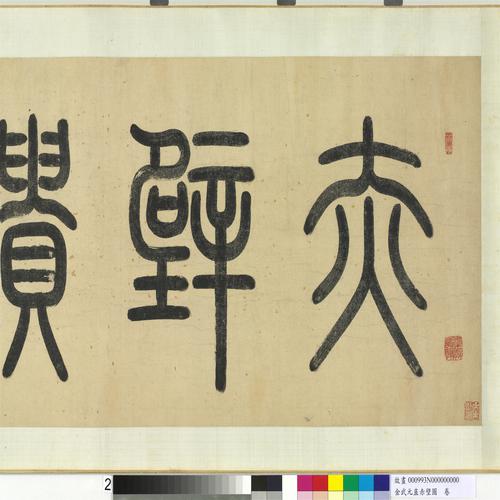 赤壁貴
2
故畫 000993N000000000
金武元直赤壁圖 卷